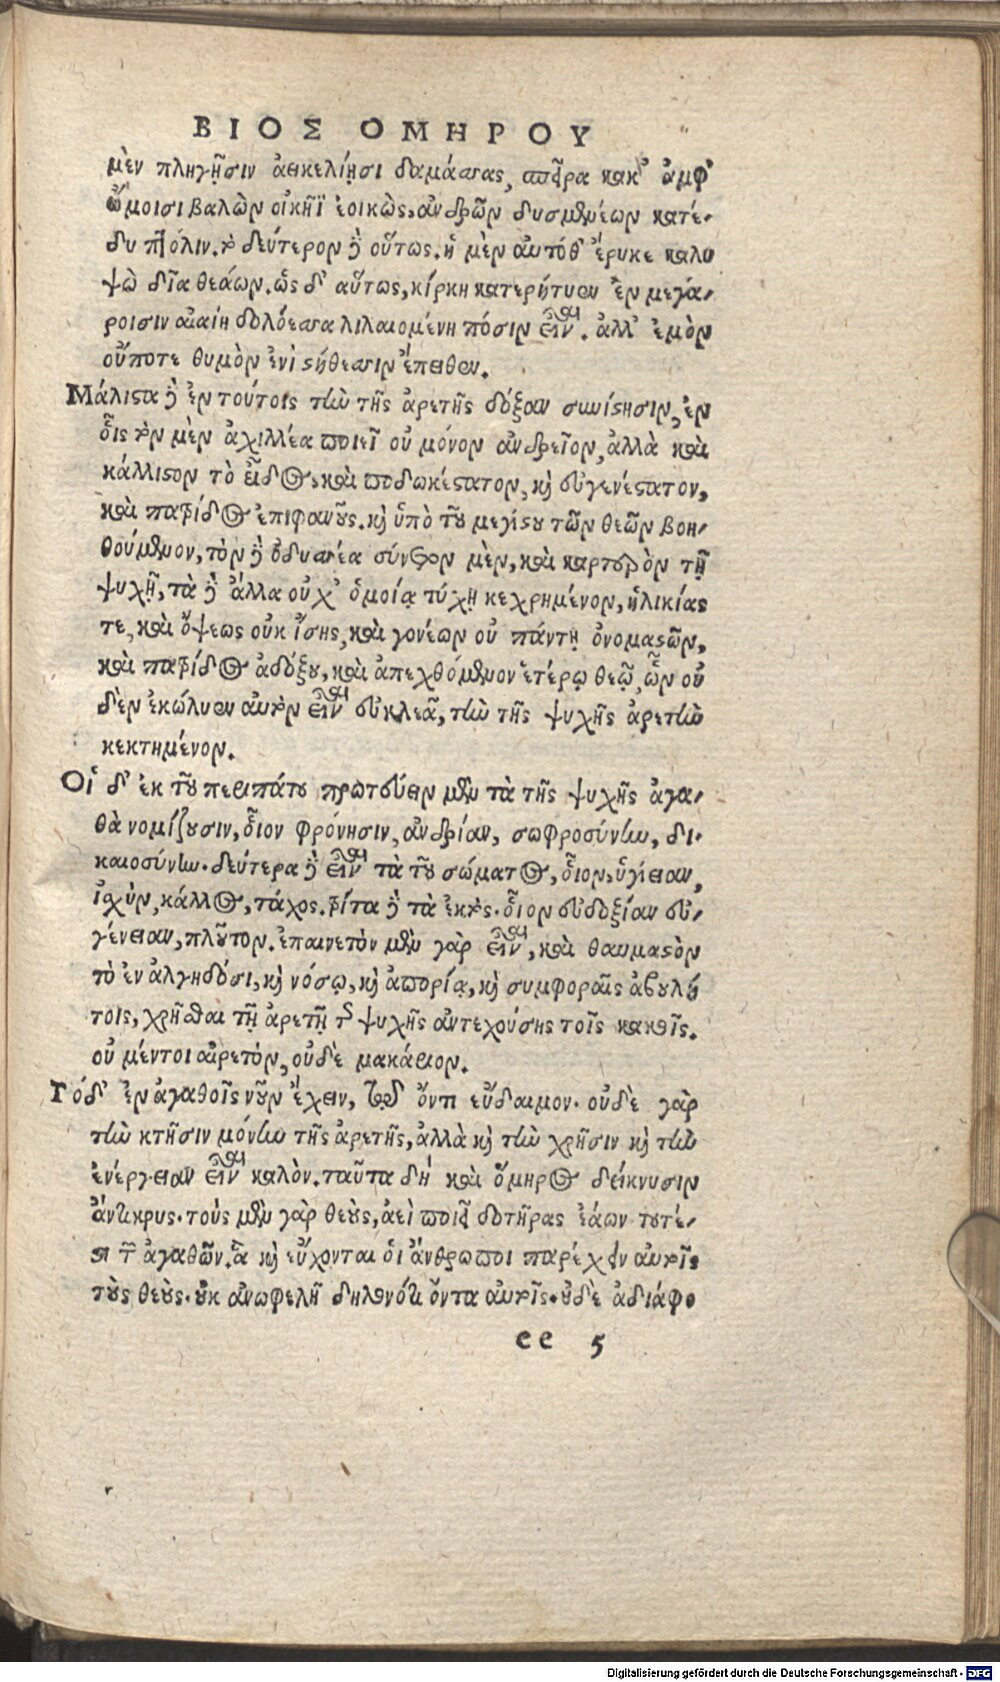 ΒΙΟΣ ΟΜΗΡΟΥ
μὲν πληγῇσιν ἀεικελίῃσι δαμάσσας, σπεῖρα κακ' ἀμφ'
ὤμοισι βαλὼν οἰκῆϊ ἐοικὼς, ἀνδρῶν δυσμενέων κατέ-
δυ πτόλιν. τὸ δεύτερον δὲ οὕτως. ἡ μὲν αὐτόθ' ἔρυκε καλυ
ψὼ δῖα θεάων. ὣς δ' αὔτως, κίρκη κατερήτυεν ἐν μεγά-
ροισιν αἰαίη δολόεσσα λιλαιομένη πόσιν εἶναι. ἀλλ' ἐμὸν
οὔποτε θυμὸν ἐνὶ στήθεσσιν ἔπειθεν.
Μάλιστα δὲ ἐν τούτοις τὴν τῆς ἀρετῆς δόξαν συνίστησιν, ἐν
οἷς τὸν μὲν ἀχιλλέα ποιεῖ οὐ μόνον ἀνδρεῖον, ἀλλὰ καὶ
κάλλιστον τὸ εἶδος, καὶ ποδωκέστατον, καὶ εὐγενέστατον,
καὶ πατρίδος ἐπιφανοῦς. καὶ ὑπὸ τοῦ μεγίστου τῶν θεῶν βοη-
θούμενον, τὸν δὲ ὀδυσσέα σύνετον μὲν, καὶ καρτερὸν τῇ
ψυχῇ, τὰ δὲ ἄλλα οὐχ' ὁμοίᾳ τύχῃ κεχρημένον, ἡλικίας
τε, καὶ ὄψεως οὐκ ἴσης, καὶ γονέων οὐ πάντη ὀνομαστῶν,
καὶ πατρίδος ἀδόξου, καὶ ἀπεχθόμενον ἑτέρῳ θεῷ, ὧν οὐ
δὲν ἐκώλυεν αὐτὸν εἶναι εὐκλεᾶ, τὴν τῆς ψυχῆς ἀρετὴν
κεκτημένον.
Οἱ δ' ἐκ τοῦ περιπάτου πρωτεύειν μὲν τὰ τῆς ψυχῆς ἀγα-
θὰ νομίζουσιν, οἷον φρόνησιν, ἀνδρίαν, σωφροσύνην, δι-
καιοσύνην. δεύτερα δὲ εἶναι τὰ τοῦ σώματος, οἷον, ὑγίειαν,
ἰσχὺν, κάλλος, τάχος. τρίτα δὲ τὰ ἐκτὸς. οἷον εὐδοξίαν εὐ-
γένειαν, πλοῦτον. ἐπαινετὸν μὲν γὰρ εἶναι, καὶ θαυμαστὸν
τὸ ἐν ἀλγηδόσι, καὶ νόσῳ, καὶ ἀπορίᾳ, καὶ συμφοραῖς ἀβουλή
τοις, χρῆσθαι τῇ ἀρετῇ τῆς ψυχῆς ἀντεχούσης τοῖς κακοῖς.
οὐ μέντοι αἱρετὸν, οὐδὲ μακάριον.
Τόδ' ἐν ἀγαθοῖς νοῦν ἔχειν, τῷδ' ὄντι εὔδαιμον. οὐδὲ γὰρ
τὴν κτῆσιν μόνην τῆς ἀρετῆς, ἀλλὰ καὶ τὴν χρῆσιν καὶ τὴν
ἐνέργειαν εἶναι καλὸν. ταῦτα δή καὶ ὅμηρος δείκνυσιν
ἄντικρυς. τοὺς μὲν γὰρ θεοὺς, ἀεὶ ποιεῖ δοτῆρας ἐάων τουτέ-
στι τῶν ἀγαθῶν. ἃ καὶ εὔχονται οἱ ἄνθρωποι παρέχειν αὐτοῖς
τοὺς θεοὺς. οὐκ ἀνωφελῆ δηλονότι ὄντα αὐτοῖς. οὐδὲ ἀδιάφο
ee 5
Digitalisierung gefördert durch die Deutsche Forschungsgemeinschaft - DFG